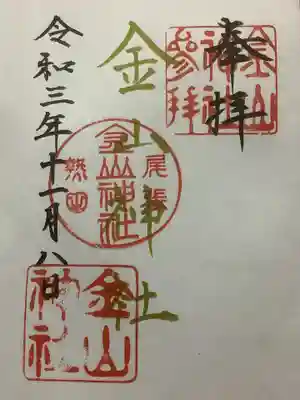 奉拝
金山
神社
參拜
金山神社
尾張
金山神社
熱田
金山
神社
令和三年十一月八日